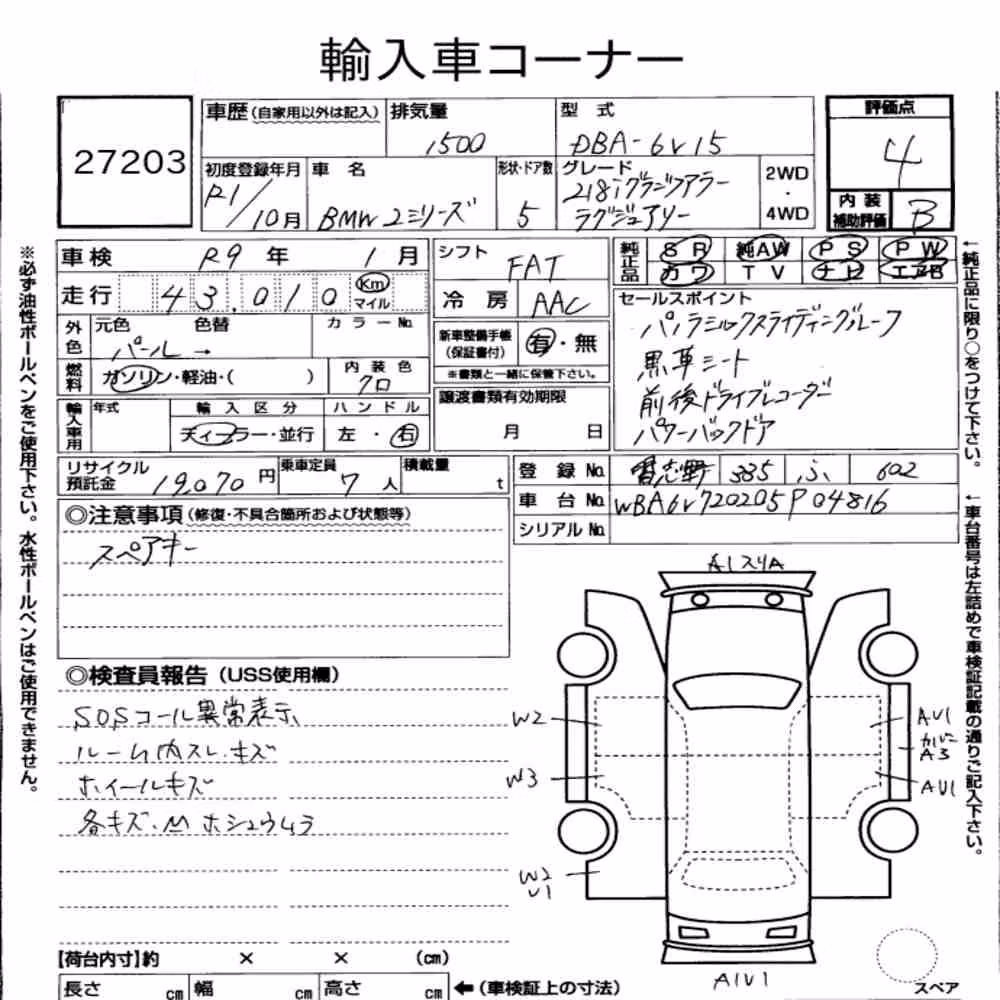 輸入車コーナー
27203
車歴(自家用以外は記入)
排気量
1500
型式
DBA-6V15
評価点
4
初度登録年月
R1/10月
車名
BMW 2シリーズ
形状・ドア数
5
グレード
218iグランツアラー
ラグジュアリー
2WD
・
4WD
内装
補助評価
B
車検 R9年 1月
走行 43,010 Km
マイル
シフト
FAT
冷房 AAC
純正品 SR 純AW PS PW
カワ TV ナビ エアB
外色 元色 色替 カラーNo.
パール→
セールスポイント
パノラミックスライディングルーフ
黒革シート
前後ドライブレコーダー
パワーバックドア
新車整備手帳
(保証書付)
有・無
※書類と一緒に保管下さい。
燃料 ガソリン・軽油・( )
内装色
クロ
輸入車用 年式 輸入区分 ハンドル
ディーラー・並行 左・右
譲渡書類有効期限
月 日
リサイクル
預託金 19,070円
乗車定員
7人
積載量
t
登録No. 習志野 335 ふ 602
車台No. WBA6V720205P04816
シリアルNo.
◎注意事項(修復・不具合箇所および状態等)
スペアキー
◎検査員報告(USS使用欄)
SOSコール異常表示
ルーム内スレ・キズ
ホイールキズ
各キズ・M ホシュウムラ
A1スリA
W2
W3
W2
U1
AU1
カバー
A3
AU1
A1U1
スペア
【荷台内寸】約 × × (cm)
長さ cm 幅 cm 高さ cm ←(車検証上の寸法)
※必ず油性ボールペンをご使用下さい。水性ボールペンはご使用できません。
←純正品に限り○をつけて下さい。
←車台番号は左詰めで車検証記載の通りご記入下さい。